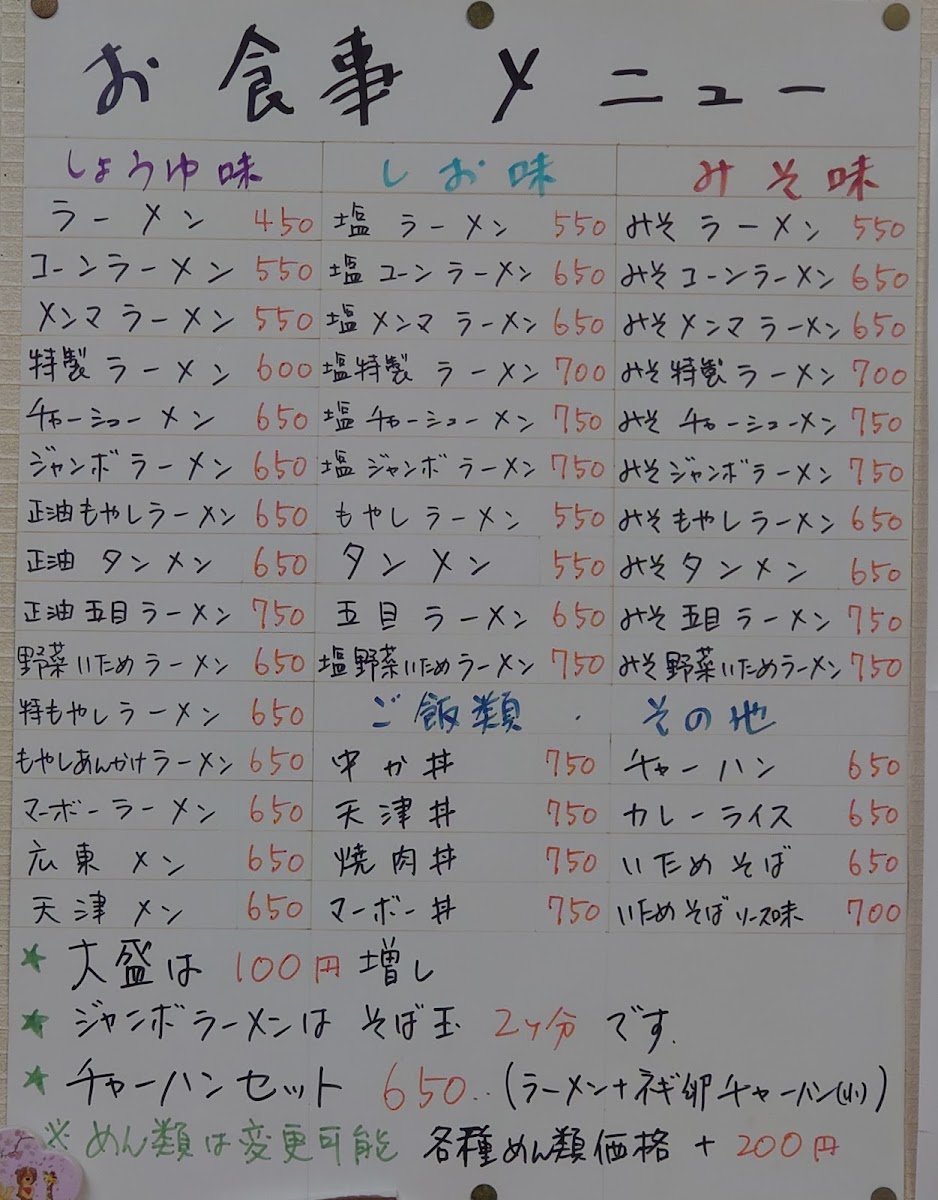 お食事メニュー
しょうゆ味 しお味 みそ味
ラーメン 450 塩ラーメン 550 みそラーメン 550
コーンラーメン 550 塩コーンラーメン 650 みそコーンラーメン 650
メンマラーメン 550 塩メンマラーメン 650 みそメンマラーメン 650
特製ラーメン 600 塩特製ラーメン 700 みそ特製ラーメン 700
チャーシューメン 650 塩チャーシューメン 750 みそチャーシューメン 750
ジャンボラーメン 650 塩ジャンボラーメン 750 みそジャンボラーメン 750
正油もやしラーメン 650 もやしラーメン 550 みそもやしラーメン 650
正油タンメン 650 タンメン 550 みそタンメン 650
正油五目ラーメン 750 五目ラーメン 650 みそ五目ラーメン 750
野菜いためラーメン 650 塩野菜いためラーメン 750 みそ野菜いためラーメン 750
特もやしラーメン 650 ご飯類・その他
もやしあんかけラーメン 650 中か丼 750 チャーハン 650
マーボーラーメン 650 天津丼 750 カレーライス 650
広東メン 650 焼肉丼 750 いためそば 650
天津メン 650 マーボー丼 750 いためそばソース味 700
★ 大盛は100円増し
★ ジャンボラーメンはそば玉2ヶ分です.
★ チャーハンセット 650..(ラーメン+ネギ卵チャーハン(小))
※めん類は変更可能 各種めん類価格+200円